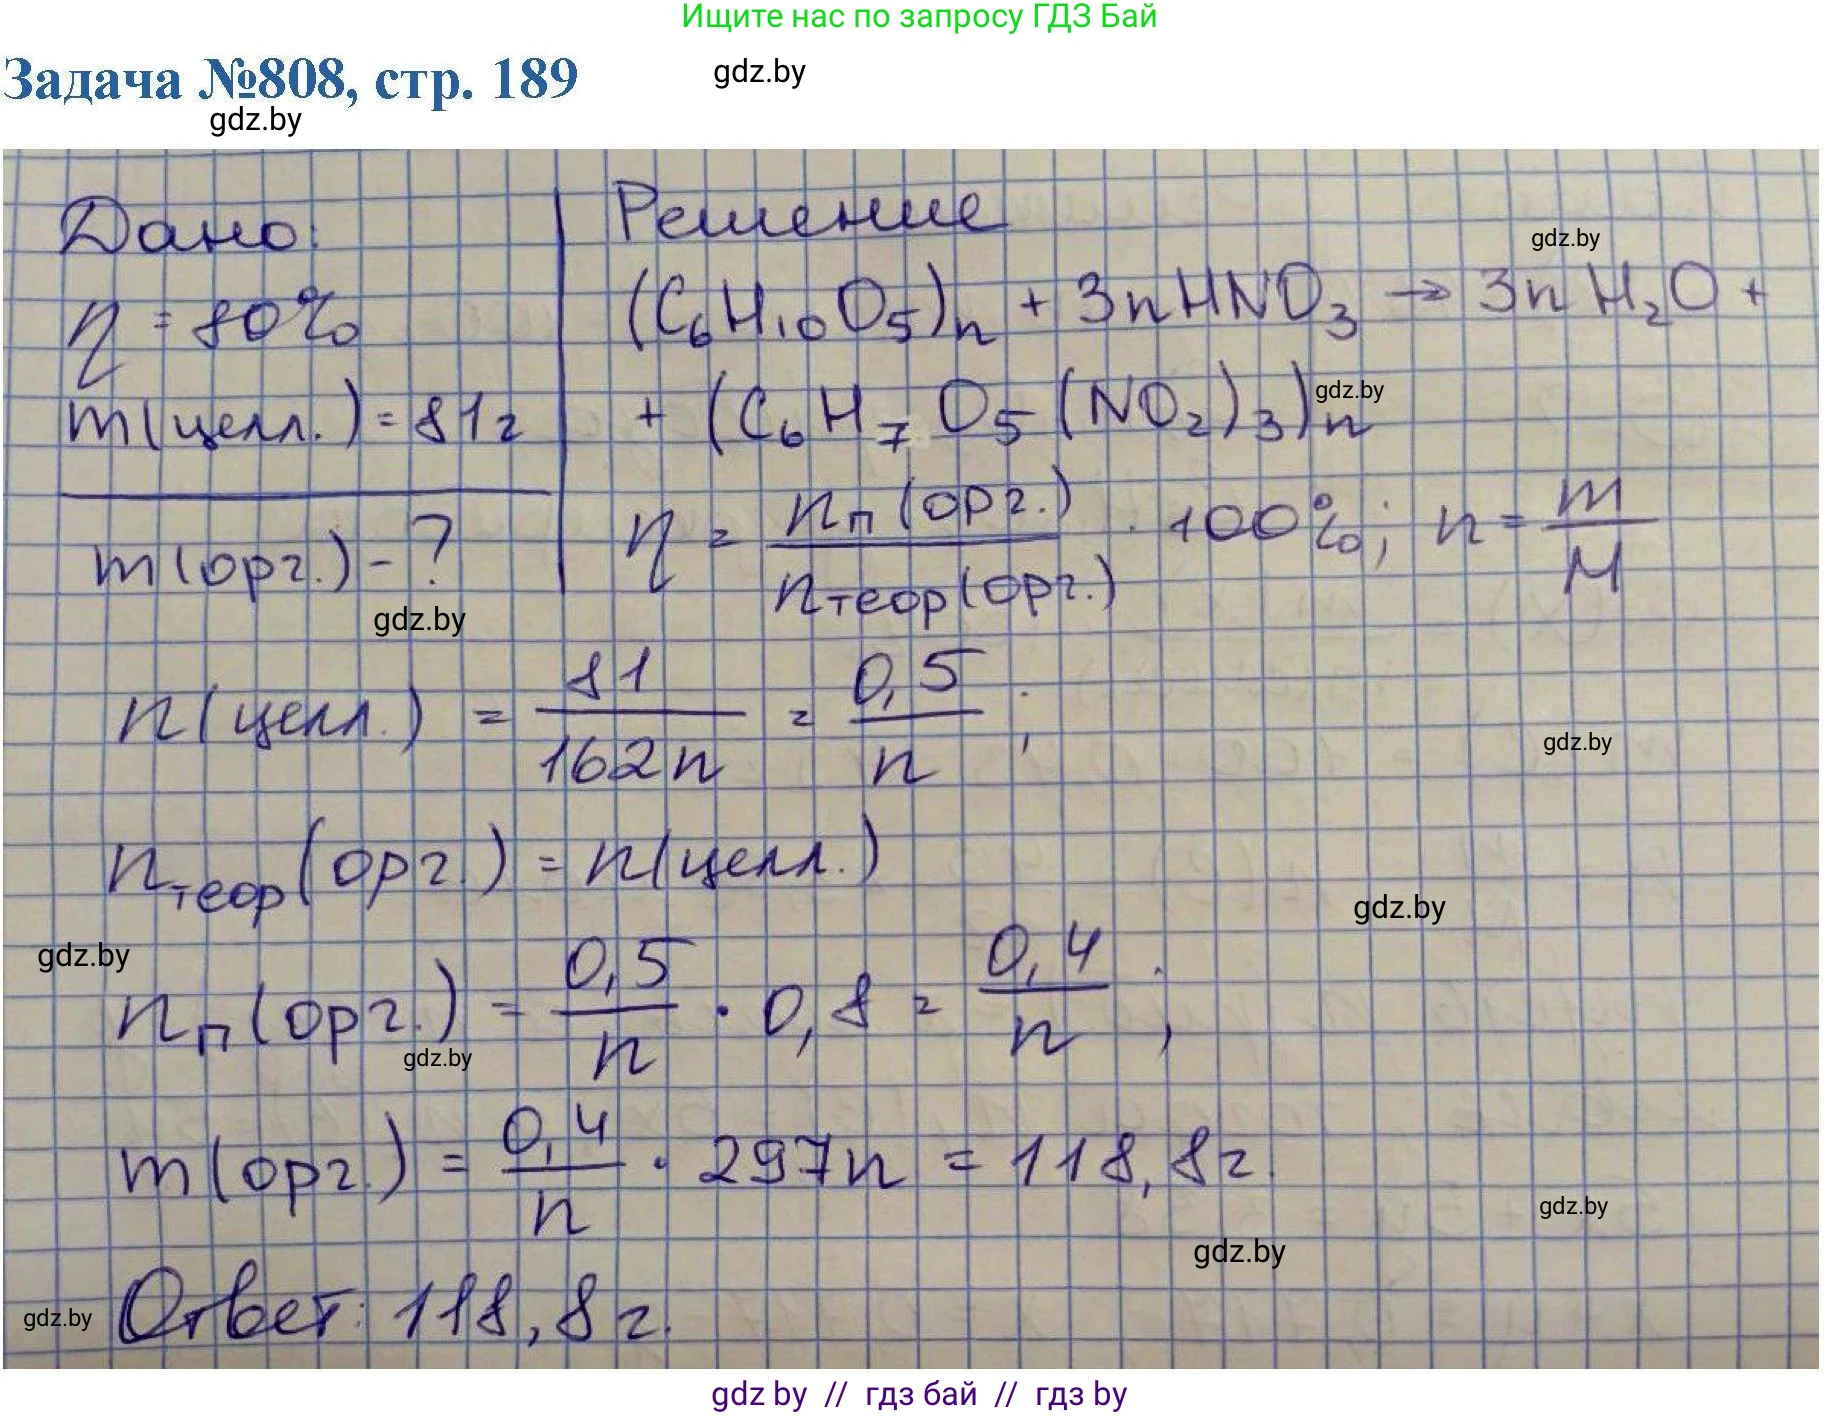 Ищите нас по запросу ГДЗ Бай
Задача №808, стр. 189
gdz.by
gdz.by
Дано:
η = 80%
m(целл.) = 81г
m(орг.) - ?
Решение
gdz.by
(C₆H₁₀O₅)n + 3nHNO₃ → 3nH₂O +
+ (C₆H₇O₅(NO₂)₃)n
gdz.by
η = nп(орг.) / nтеор(орг.) · 100%; n = m / M
gdz.by
n(целл.) = 81 / 162n = 0,5 / n ;
gdz.by
nтеор(орг.) = n(целл.)
gdz.by
gdz.by
nп(орг.) = 0,5 / n · 0,8 = 0,4 / n ;
gdz.by
m(орг.) = 0,4 / n · 297n = 118,8г.
gdz.by
gdz.by
gdz.by
Ответ: 118,8г.
gdz by // гдз бай // гдз by